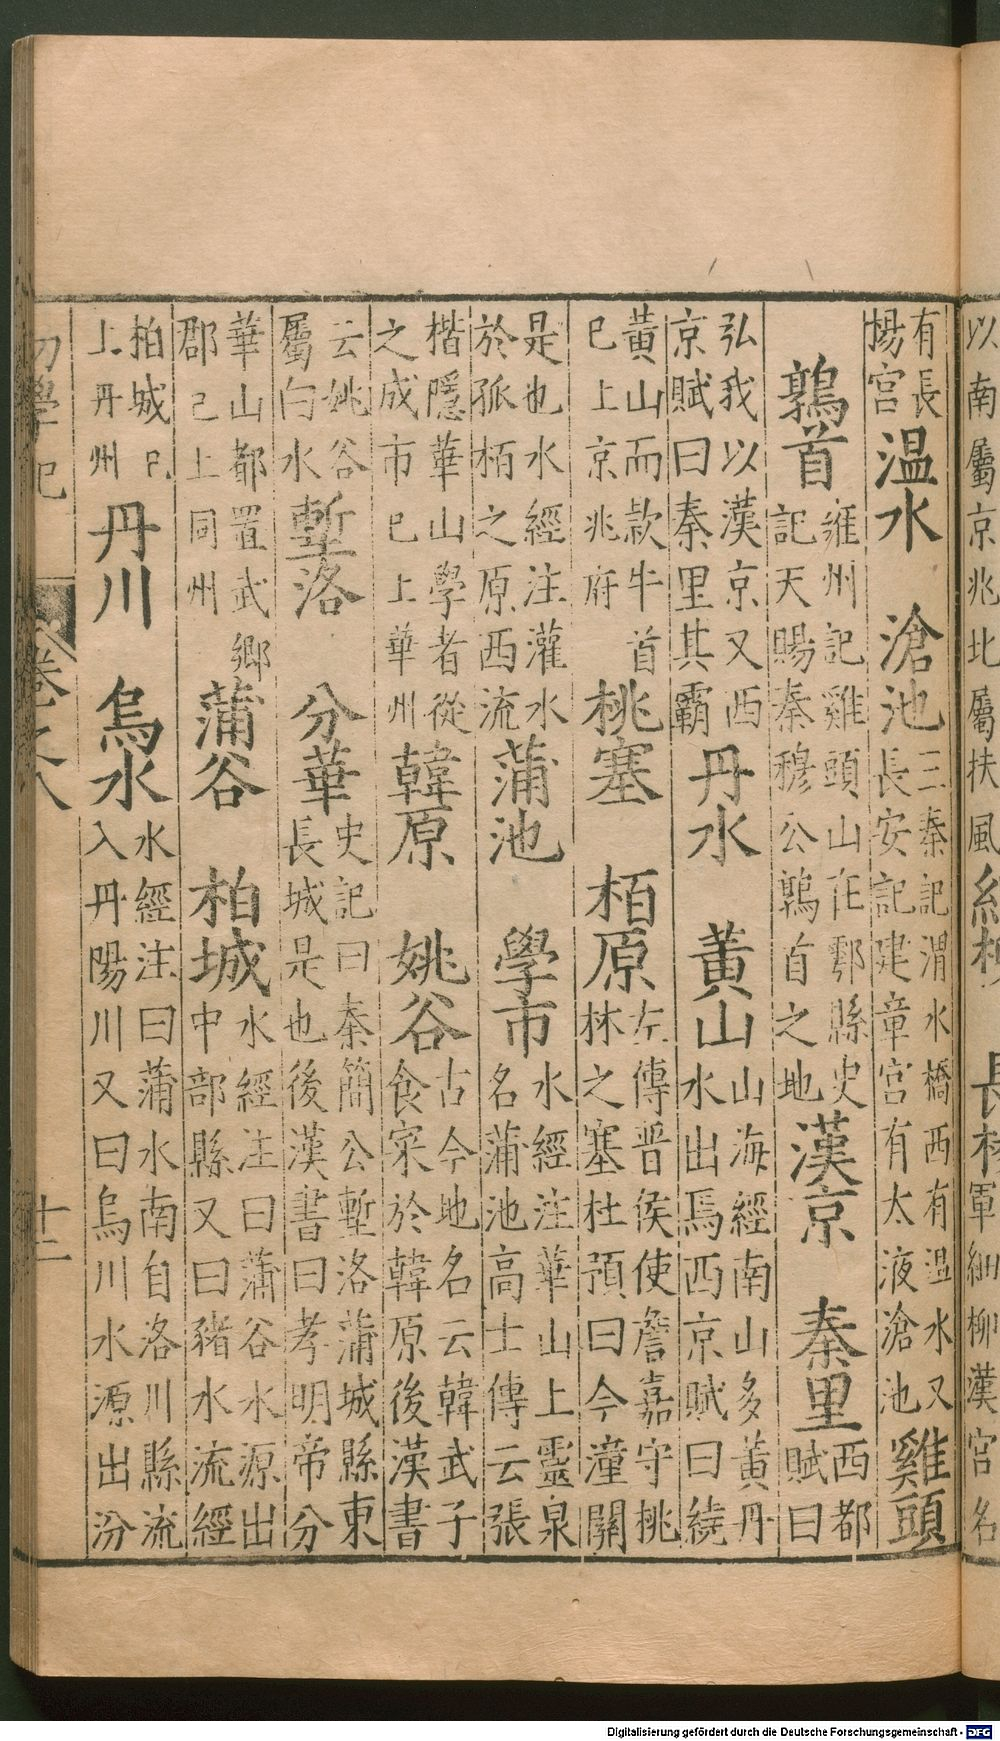 以南屬京兆北屬扶風 細柳 長林 軍細柳漢宮名
有長楊宮 温水 滄池 三秦記渭水橋西有温水又長安記建章宮有太液滄池 雞頭
鶉首 雍州記雞頭山在鄠縣史記天賜秦穆公鶉首之地 漢京 秦里 西都賦曰
弘我以漢京又西京賦曰秦里其霸 丹水 黃山 山海經南山多黃丹水出焉西京賦曰繞
黃山而款牛首已上京兆府 桃塞 栢原 左傳晋侯使詹嘉守桃林之塞杜預曰今潼關
是也水經注灌水於孤栢之原西流 蒲池 學市 水經注華山上靈泉名蒲池高士傳云張
楷隱華山學者從之成市已上華州 韓原 姚谷 古今地名云韓武子食宷於韓原後漢書
云姚谷屬白水 塹洛 分華 史記曰秦簡公塹洛蒲城縣東長城是也後漢書曰孝明帝分
華山都置武鄉郡已上同州 蒲谷 柏城 水經注曰蒲谷水源出中部縣又曰豬水流經
柏城已上丹州 丹川 烏水 水經注曰蒲水南自洛川縣流入丹陽川又曰烏川水源出汾
初學記 卷之八 十二
Digitalisierung gefördert durch die Deutsche Forschungsgemeinschaft - DFG